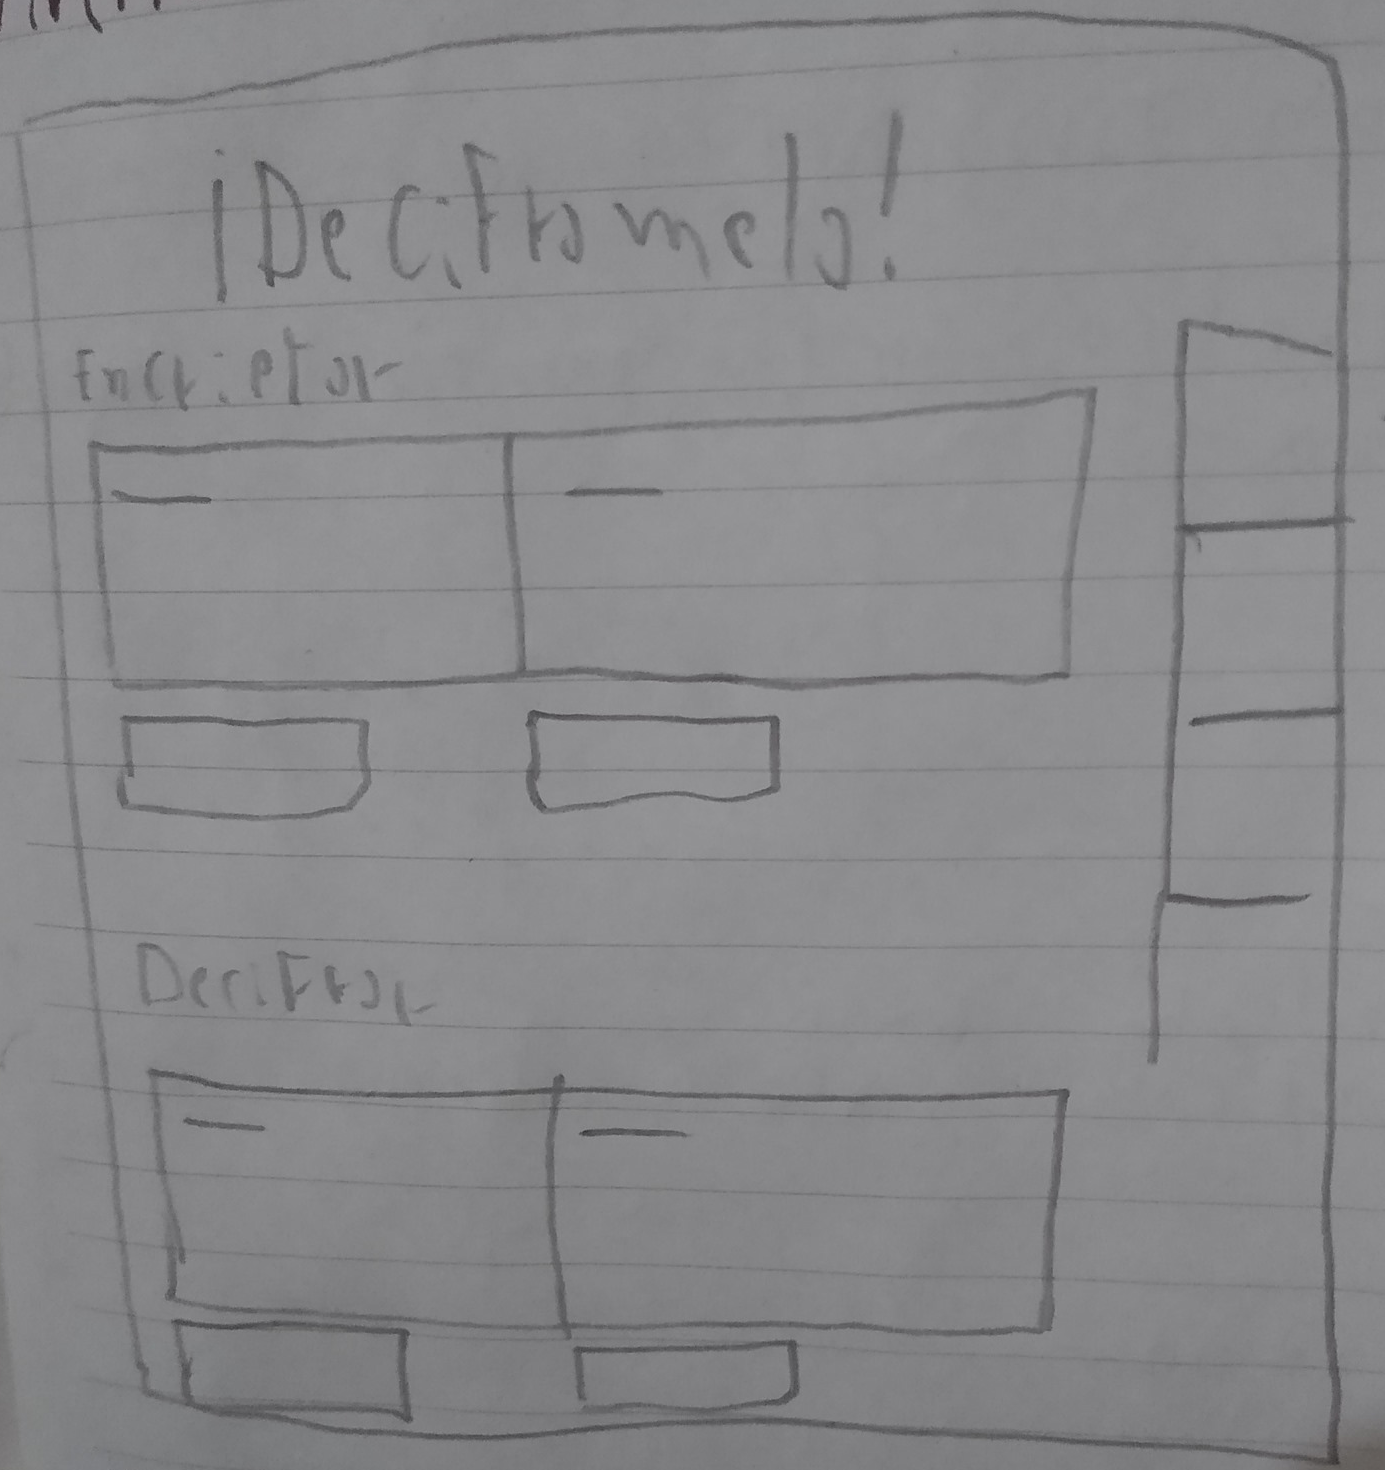 ¡Decifromelo!
Encriptor
Decifror